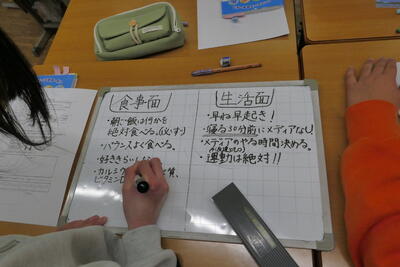 食事面
・朝ご飯は何かを
絶対食べる。(必ず)
・バランスよく食べる。
・好ききらい
・カルシ
ビタミンD
生活面
・早ね早起き!
・寝る30分前にメディアなし!
・メディアのやる時間決める。
・運動は絶対!!